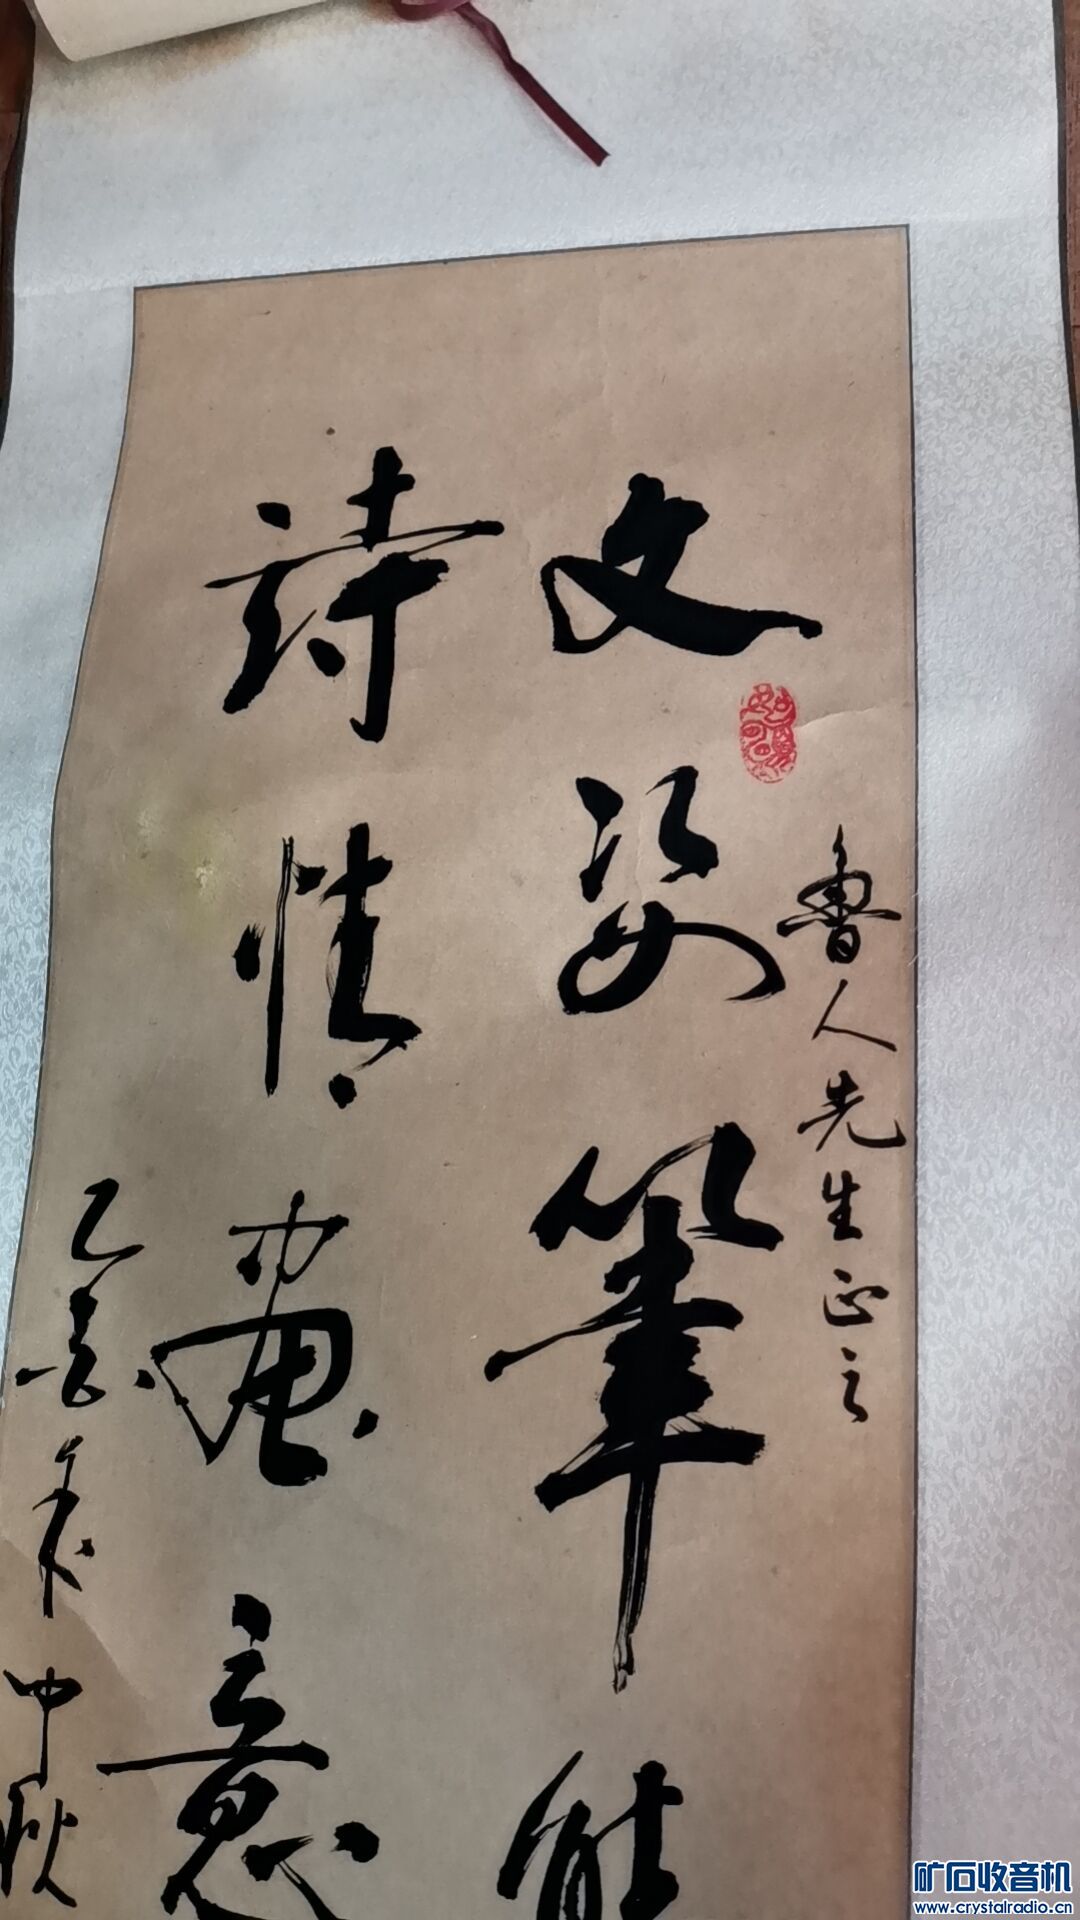 魯人先生正之
文姿筆
詩情畫意
乙亥年中秋
矿石收音机
www.crystalradio.cn